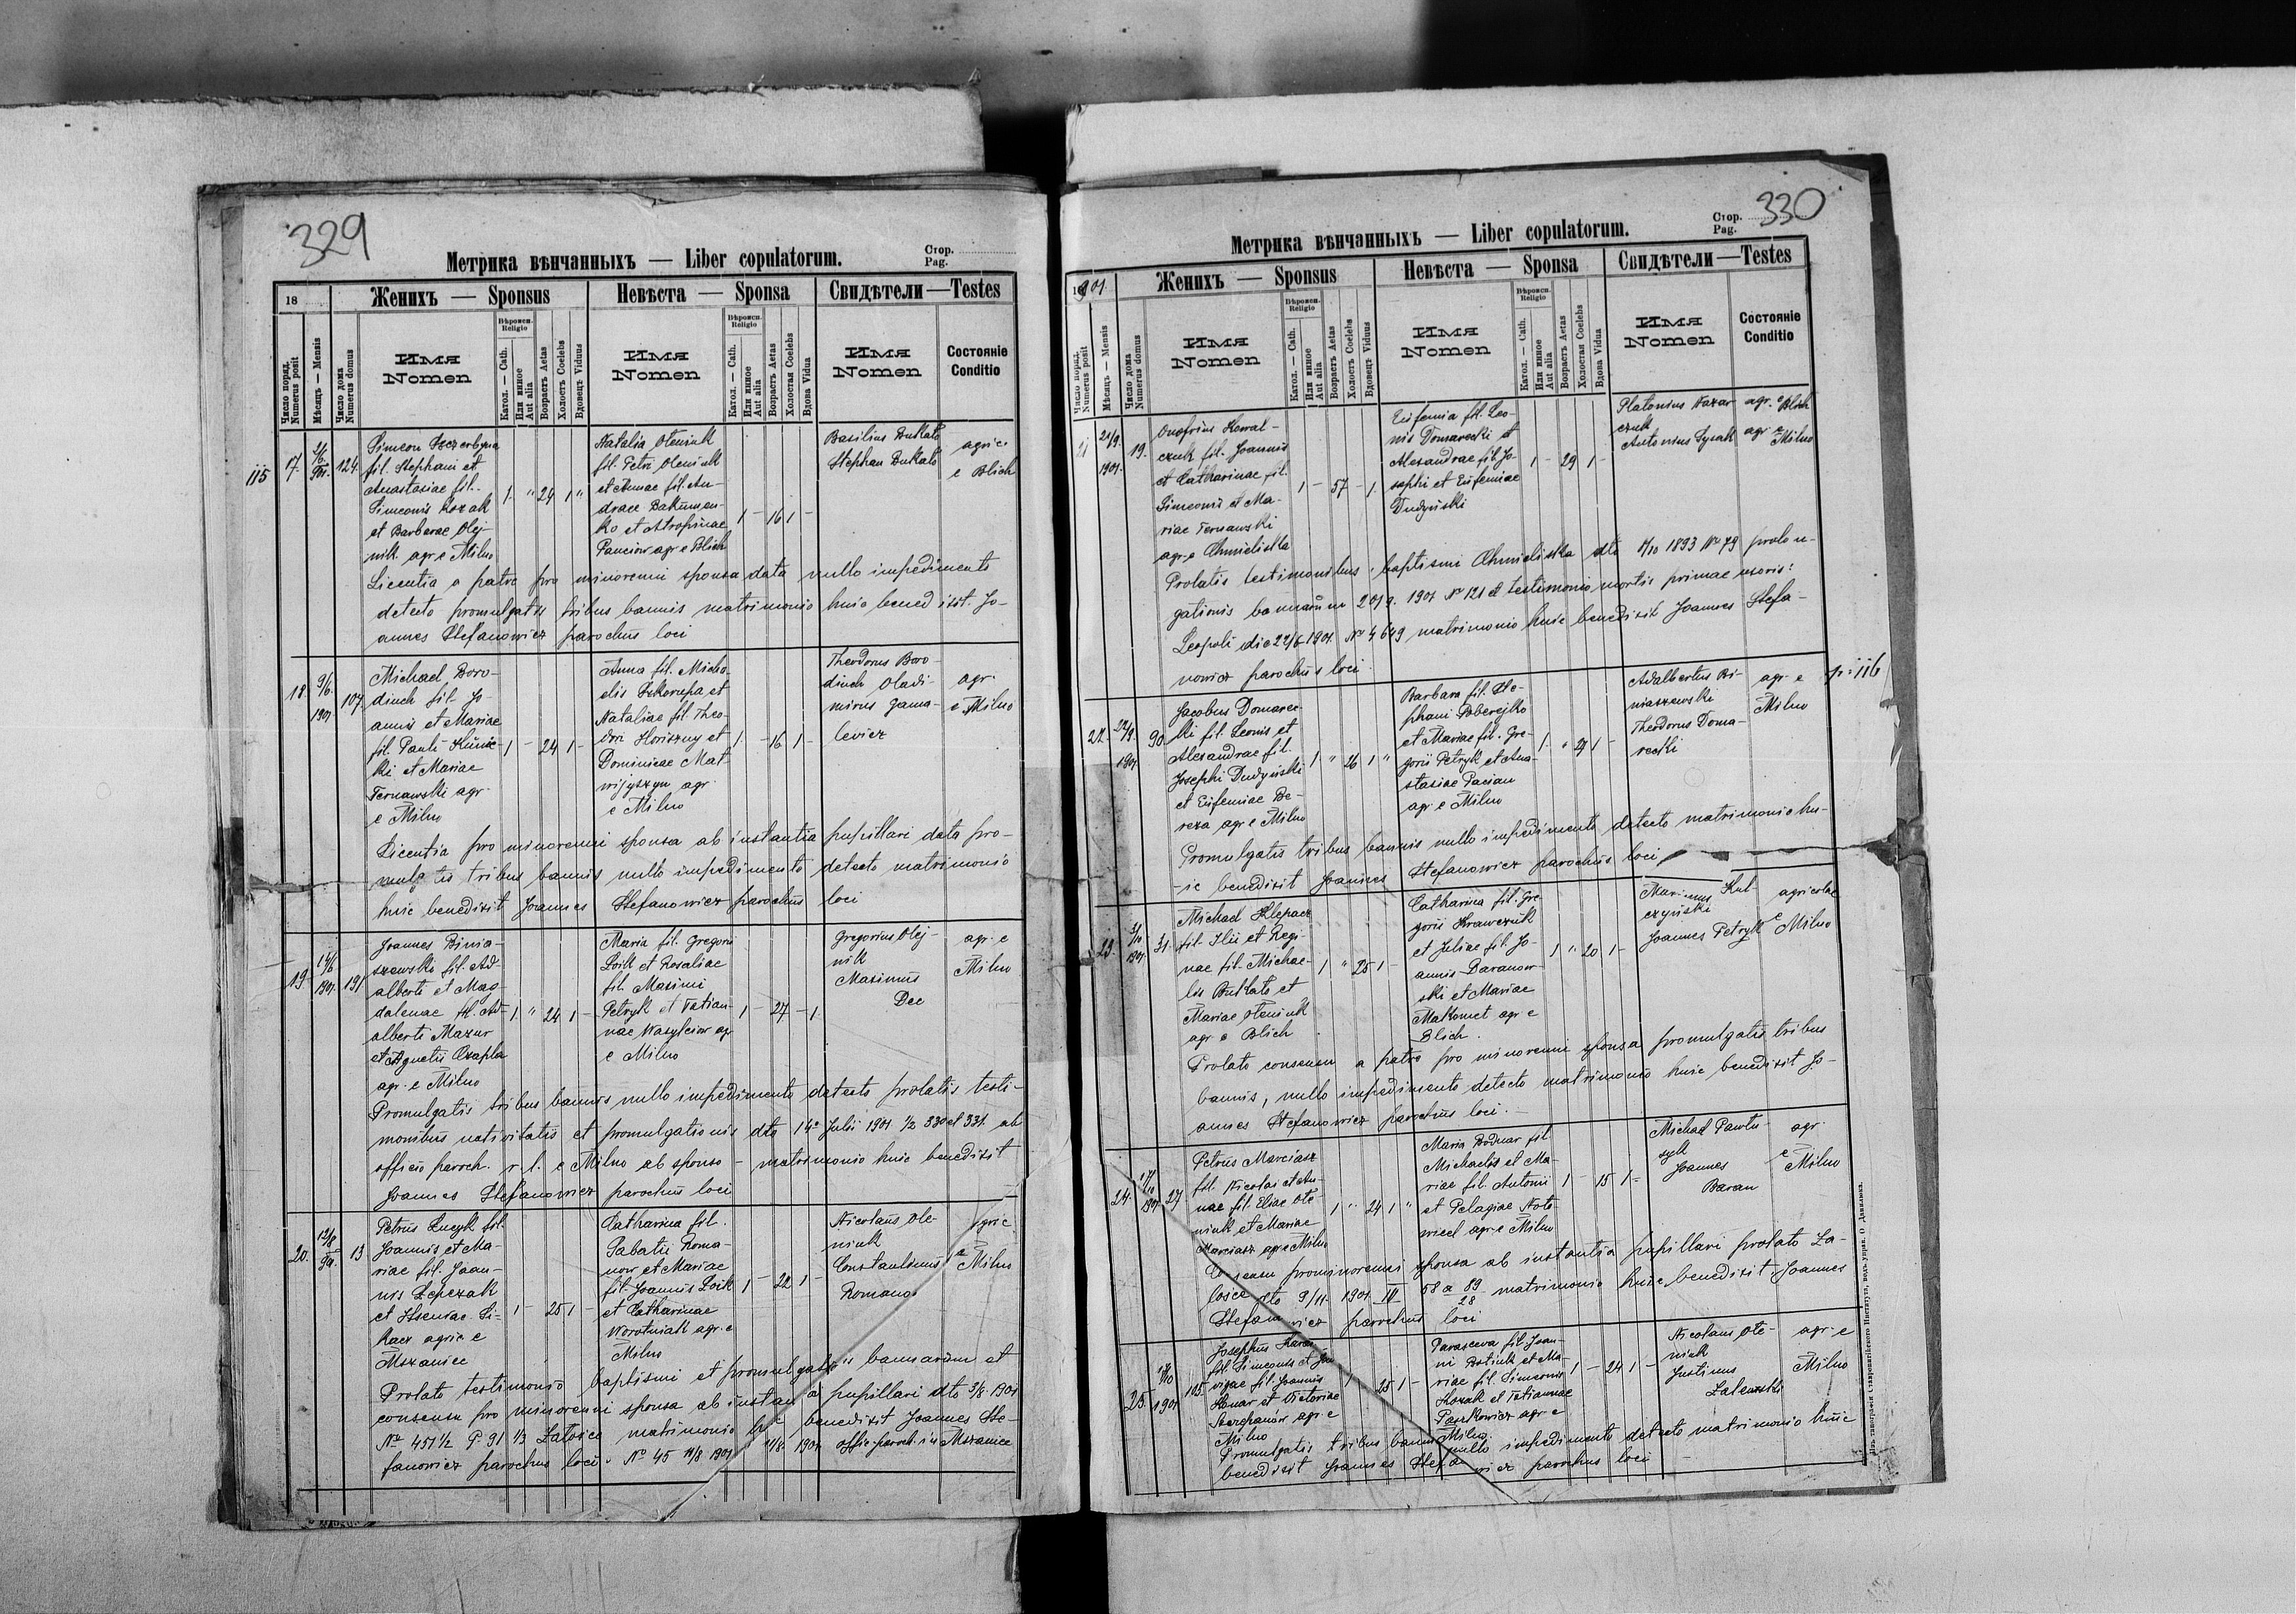 329
Метрика вѣнчанныхъ — Liber copulatorum.
Стор.
Pag.
18
Женихъ — Sponsus
Невѣста — Sponsa
Свидѣтели — Testes
Число поряд.
Numerus posit
Мѣсяць — Mensis
Число дома
Numerus domus
Имя
Nomen
Вѣроисп.
Religio
Катол. — Cath.
Или инное
Aut alia
Возрастъ Aetas
Холостъ Coelebs
Вдовецъ Viduus
Имя
Nomen
Вѣроисп.
Religio
Катол. — Cath.
Или инное
Aut alia
Возрастъ Aetas
Холостая Coelebs
Вдова Vidua
Имя
Nomen
Состояніе
Conditio
115
17.
124.
Simeon
fil. Stephani et
Anastasiae fil.
Simeonis Kozak
et Barbarae Olej-
nik agr e Milno
1 " 24 1 "
Natalia Oleniuk
fil. Petri Oleniuk
et Annae fil. An-
dreae Bakumen-
ko et
Panciow agr e Blich
1 - 16 1 -
Basilius Bukato
Stephan Bukato
agric.
e Blich
Licentia a patre pro minorenni sponsa data nullo impedimento
detecto promulgatis tribus bannis matrimonio huic benedixit Jo-
annes Stefanowicz parochus loci
18.
9/6.
1901
107
Michael Boro-
diuch fil. Jo-
annis et Mariae
fil. Pauli
ki et Mariae
Ternawski agr
e Milno
1 - 24 1 -
Anna fil. Micha
elis Szkorupa et
Nataliae fil. Theo-
dori Horiszny et
Dominicae Mat
wijyszyn agr
e Milno
1 - 16 1 -
Theodorus Boro-
diuch Vladi-
mirus Gama-
lewicz
agr.
e Milno
Licentia pro minorenni sponsa ab instantia pupillari data pro-
mulgatis tribus bannis nullo impedimento detecto matrimonio
huic benedixit Joannes Stefanowicz parochus loci
19
1901.
191
Joannes Binia-
szewski fil. Ad-
alberti et Mag-
dalenae fil. Ad-
alberti Mazur
et Agnetis Czapla
agr. e Milno
1 " 24 1 -
Maria fil. Gregorii
Loik et Rosaliae
fil. Maximi
Petryk et Tatian-
nae Wasylciow agr
e Milno
1 - 27 - 1
Gregorius Olej-
nik
Maximus
Dec
agr. e
Milno
Promulgatis tribus bannis nullo impedimento detecto prolatis testi-
moniis nativitatis et promulgationis dto 14 Julii 1901 1/2 330 et 331 ab
officio paroch. r. l. e Milno ab sponso - matrimonio huic benedixit
Joannes Stefanowicz parochus loci
20.
12/8
13
Petrus Lucyk fil.
Joannis et Ma-
riae fil. Joan-
nis Lepczak
et Xseniae Si-
kacz agric e
Mszaniec
1 - 25 1 -
Catharina fil.
Sabatii Roma-
now et Mariae
fil. Joannis Loik
et Catharinae
Worotniak agr. e
Milno
1 - 22 1 -
Nicolaus Ole-
niuk
Constantinus
Romanow
agric
e Milno
Prolato testimonio baptismi et promulgationis bannorum et
consensu pro minorenni sponsa ab instantia pupillari dto 3/8 1901
No 451 1/2 P 91 1/3 Zalosce matrimonio huic benedixit Joannes Ste-
fanowicz parochus loci. No 45 11/8 1901 11/8 1901 offic. paroch. in Mszaniec
330
Метрика вѣнчанныхъ — Liber copulatorum.
Стор.
Pag.
1901.
Женихъ — Sponsus
Невѣста — Sponsa
Свидѣтели — Testes
Число поряд.
Numerus posit
Мѣсяць — Mensis
Число дома
Numerus domus
Имя
Nomen
Вѣроисп.
Religio
Катол. — Cath.
Или инное
Aut alia
Возрастъ Aetas
Холостъ Coelebs
Вдовецъ Viduus
Имя
Nomen
Вѣроисп.
Religio
Катол. — Cath.
Или инное
Aut alia
Возрастъ Aetas
Холостая Coelebs
Вдова Vidua
Имя
Nomen
Состояніе
Conditio
21
21/9.
1901.
19.
Onofrius Kowal-
czuk fil. Joannis
et Catharinae fil.
Simeonis et Ma-
riae Ternawski
agr. e Chmieliska
1 - 57 - 1.
Eufemia fil. Leo-
nis Domarecki et
Alexandrae fil. Jo-
sephi et Eufemiae
Dudyński
1 - 29 1 -
Platonius Nazar
czuk
Antonius Lysak
agr. e Blich
agr e Milno
Prolatis testimonibus: baptismi Chmieliska dto 1893 No 79 promul-
gationis bannorum 20/9. 1901 No 121 et testimonio mortis primae uxoris:
Leopoli die 22/6 1901. No 4649 matrimonio huic benedixit Joannes Stefa-
nowicz parochus loci.
22.
22/9.
1901
90
Jacobus Domarec-
ki fil. Leonis et
Alexandrae fil.
Josephi Dudyński
et Eufemiae Be-
reza agr e Milno
1 " 26 1 "
Barbara fil. Ste-
phani Zaberejko
et Mariae fil. Gre-
gorii Petryk et Ana-
stasiae Pacian
agr. e Milno
1. " 21 -
Adalbertus Bi-
niaszewski
Theodorus Doma-
recki
agr. e
Milno
116
Promulgatis tribus bannis nullo impedimento detecto matrimonio hu-
-ic benedixit Joannes Stefanowicz parochus loci
23.
1901
31.
Michael Klepacz
fil. Ilii et Regi-
nae fil. Michae-
lis Bukato et
Mariae Oleniuk
agr e Blich
1 " 25 1 -
Catharina fil. Gre
gorii Krawczuk
et Juliae fil. Jo-
annis Baranow-
ski et Mariae
Makomet agr e
Blich.
1 " 20 1 -
Kul-
czyński
Joannes Petryk
agricolae
e Milno
Prolato consensu a patre pro minorenni sponsa promulgatis tribus
bannis, nullo impedimento detecto matrimonio huic benedixit Jo-
annes Stefanowicz parochus loci. -
24.
1901
27
Petrus Marciasz
fil. Nicolai et An-
nae fil. Eliae Ole
niuk et Mariae
Marciasz agr e Milno
1 " 24 1 "
Maria Bodnar fil
Michaelis et Ma-
riae fil. Antonii
et Pelagiae Noto-
agr. e Milno
1 - 15 1 -
Michael Pawlu-
syk
Joannes
Baran
agr.
e
Milno
Consensu pro minorenni sponsa ab instantia pupillari prolato Za-
losce dto 9/11 1901. IV 58 a 89 matrimonio huic benedixit Joannes
28
Stefanowicz parochus loci
25.
1901
105
Josephus
fil. Simeonis et
fil. Joannis
et Victoriae
Szczepanow agr. e
Milno
25 1 -
Parascewa fil. Joan-
ni et Ma-
riae fil. Simeonis
Kozak et Tatiannae
Paszkowicz agr. e
Milno.
1 - 24 1 -
Nicolaus Ole-
niuk
Justinus
Zalewski
agr. e
Milno
Promulgatis tribus bannis nullo impedimento detecto matrimonio huic
benedixit Joannes Stefanowicz parochus loci